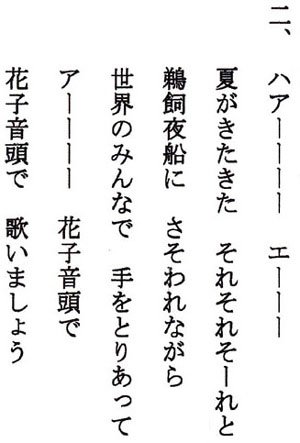 二、ハアーーーー　エーーー
夏がきたきた　それそれそーれと
鵜飼夜船に　さそわれながら
世界のみんなで　手をとりあって
アーーーー　花子音頭で
花子音頭で　歌いましょう